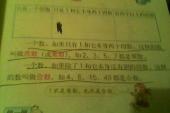 一个数，如果只有1和它本身两个因数，这样的数
叫做质数（或素数）。如2，3，5，7都是质数。
一个数，如果除了1和它本身还有别的因数，这样
的数叫做合数。如4，6，15，49都是合数。
1不是质数，也不是合数。